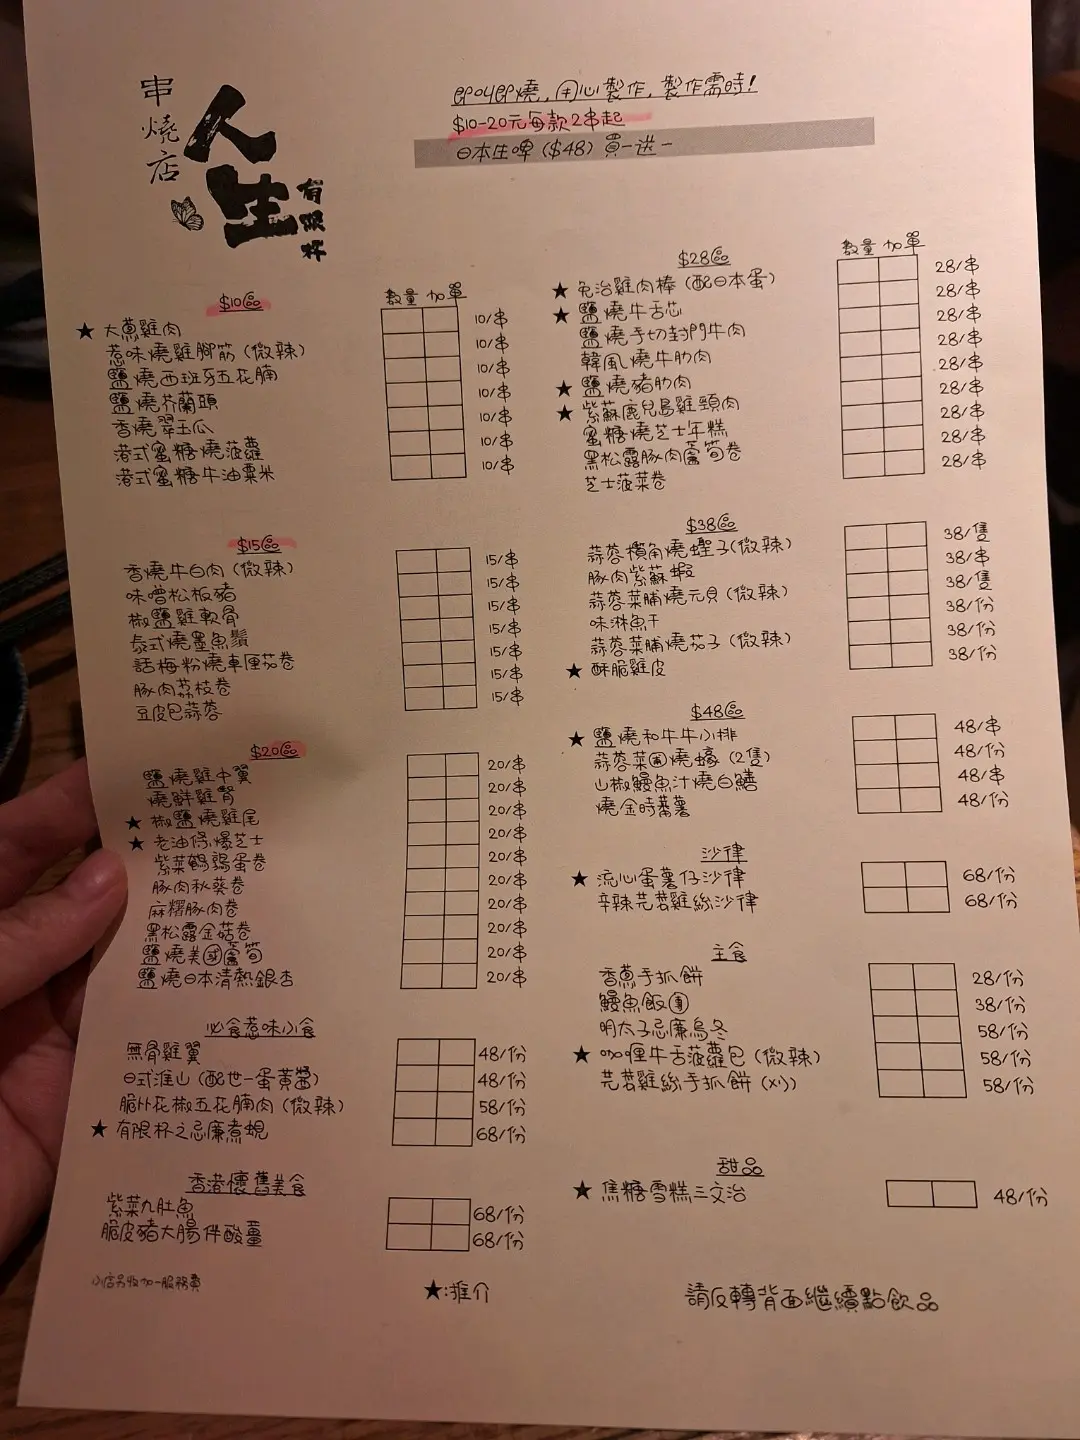 串燒店
人生
有限杯
即叫即燒,用心製作,製作需時!
$10-20元每款2串起
日本生啤($48)買一送一
$10區
數量 加單
★ 大蔥雞肉 10/串
惹味燒雞腳筋(微辣) 10/串
鹽燒西班牙五花腩 10/串
鹽燒芥蘭頭 10/串
香燒翠玉瓜 10/串
港式蜜糖燒菠蘿 10/串
港式蜜糖牛油粟米 10/串
$15區
香燒牛白肉(微辣) 15/串
味噌松板豬 15/串
椒鹽雞軟骨 15/串
泰式燒墨魚鬚 15/串
話梅粉燒車厘茄卷 15/串
豚肉荔枝卷 15/串
豆皮包蒜蓉 15/串
$20區
鹽燒雞中翼 20/串
燒鮮雞腎 20/串
★ 椒鹽燒雞尾 20/串
★ 老油條爆芝士 20/串
紫菜鵪鶉蛋卷 20/串
豚肉秋葵卷 20/串
麻糬豚肉卷 20/串
黑松露金菇卷 20/串
鹽燒美國蘆筍 20/串
鹽燒日本清熱銀杏 20/串
必食惹味小食
無骨雞翼 48/份
日式淮山(配世一蛋黃醬) 48/份
脆卜花椒五花腩肉(微辣) 58/份
★ 有限杯之忌廉煮蜆 68/份
香港懷舊美食
紫菜九肚魚 68/份
脆皮豬大腸伴酸薑 68/份
小店另收加一服務費
★:推介
$28區
數量 加單
★ 免治雞肉棒(配日本蛋) 28/串
★ 鹽燒牛舌芯 28/串
鹽燒手切封門牛肉 28/串
韓風燒牛肋肉 28/串
★ 鹽燒豬肋肉 28/串
★ 紫蘇鹿兒島雞頸肉 28/串
蜜糖燒芝士年糕 28/串
黑松露豚肉蘆筍卷 28/串
芝士菠菜卷 28/串
$38區
蒜蓉欖角燒蟶子(微辣) 38/隻
豚肉紫蘇蝦 38/串
蒜蓉菜脯燒元貝(微辣) 38/隻
味淋魚干 38/份
蒜蓉菜脯燒茄子(微辣) 38/份
★ 酥脆雞皮 38/份
$48區
★ 鹽燒和牛牛小排 48/串
蒜蓉菜圃燒蠔(2隻) 48/份
山椒鰻魚汁燒白鱔 48/串
燒金時蕃薯 48/份
沙律
★ 流心蛋薯仔沙律 68/份
辛辣芫荽雞絲沙律 68/份
主食
香蔥手抓餅 28/份
鰻魚飯團 38/份
明太子忌廉烏冬 58/份
★ 咖喱牛舌菠蘿包(微辣) 58/份
芫荽雞絲手抓餅(刈) 58/份
甜品
★ 焦糖雪糕三文治 48/份
請反轉背面繼續點飲品